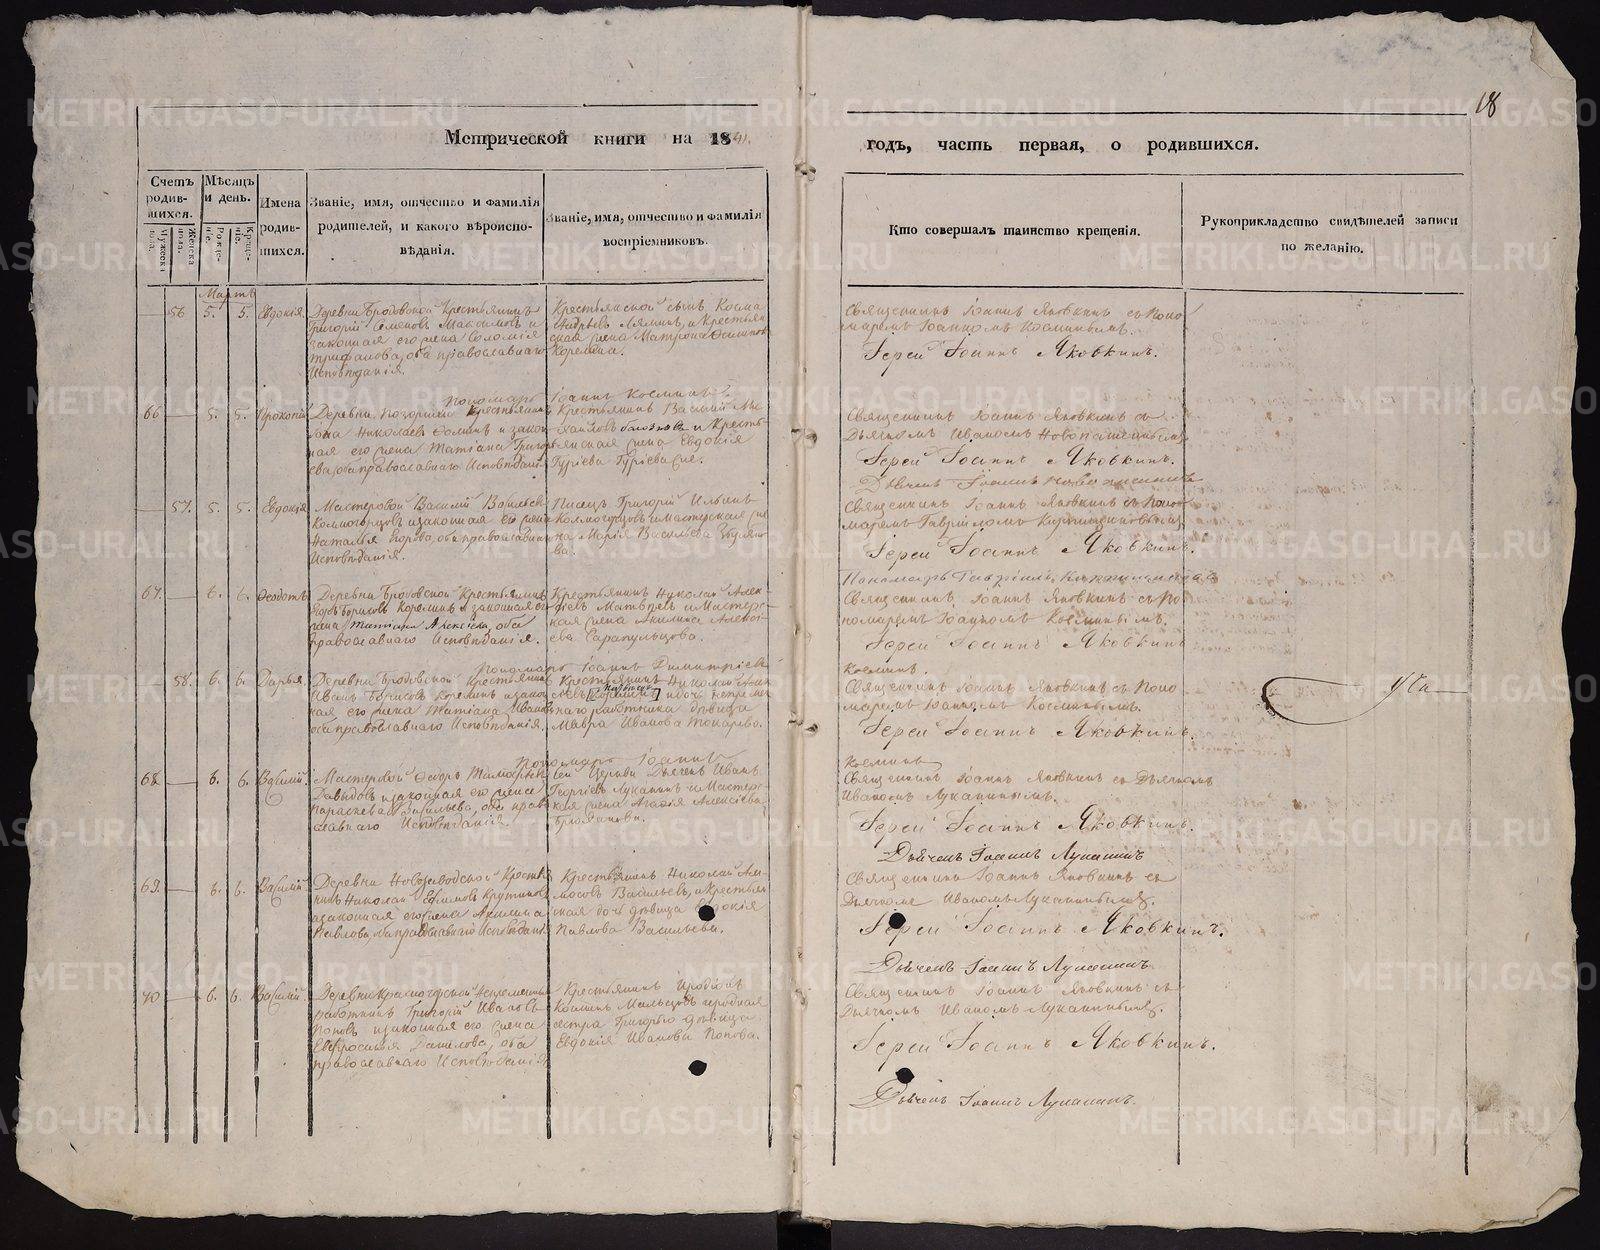 18
Метрической книги на 1841. годъ, часть первая, о родившихся.
Счетъ родившихся.
Мужеска пола.
Женска пола.
Мѣсяцъ и день.
Рожденіе.
Крещеніе.
Имена родившихся.
Званіе, имя, отчество и фамилія
родителей, и какого вѣроиспо-
вѣданія.
Званіе, имя, отчество и фамилія
воспріемниковъ.
Кто совершалъ таинство крещенія.
Рукоприкладство свидѣтелей записи
по желанію.
Мартъ
56 5. 5. Евдокія
Деревни Бродовской Крестьянинъ
Григорій Семеновъ Максимовъ и
законная его жена Соломія
Трифанова, оба православнаго
Исповѣданія.
Крестьянской сынъ Косма
Андреевъ Лялинъ, и Крестьян
ская жена Матрона
Корелина.
Священникъ Іоаннъ Яковкинъ съ Поно
маремъ Іоанномъ Косминымъ.
Іерей Іоаннъ Яковкинъ.
Пономарь Іоаннъ Косминъ
66 5. 5. Прокопій
Деревни Крестьянинъ
Николаевъ Ѳоминъ и закон
ная его жена Татіана Григорь
ева, оба православнаго Исповѣданія
Крестьянинъ Василій Ми
хайловъ и Кресть
янская жена Евдокія
Гуріева Гуріевыхъ.
Священникъ Іоаннъ Яковкинъ съ
Дьячкомъ Иваномъ Новопашеннымъ
Іерей Іоаннъ Яковкинъ.
Дьячекъ Іоаннъ Новопашенный
57. 5. 5. Евдокія
Мастеровой Василій Васильевъ
Колмогорцовъ и законная его жена
Наталья Егорова, оба православнаго
Исповѣданія.
Писецъ Григорій Ильинъ
Колмогорцовъ и мастерская же
на Марія Васильева
ва.
Священникъ Іоаннъ Яковкинъ съ Поно
маремъ Гавріиломъ
Іерей Іоаннъ Яковкинъ.
Пономарь Гавріилъ
67. 6. 6. Ѳеодотъ
Деревни Бродовской Крестьянинъ
Егоръ Борисовъ Корелинъ и законная его
жена Татіана Алексѣева, оба
православнаго Исповѣданія.
Крестьянинъ Николай Алек
сѣевъ Матвѣевъ и Мастерс-
кая жена Акилина Алексѣ-
ева Сарапульцова.
Священникъ Іоаннъ Яковкинъ съ По
номаремъ Іоанномъ Косминымъ.
Іерей Іоаннъ Яковкинъ
Пономарь Іоаннъ Димитріевъ
Косминъ.
58. 6. 6. Дарья.
Деревни Бродовской Крестьянинъ
Иванъ Борисовъ Корелинъ и закон
ная его жена Татіана Иванова
оба православнаго Исповѣданія.
Крестьянинъ Николай
и дочь непремѣн
наго работника дѣвица
Мавра Иванова Токарева.
Священникъ Іоаннъ Яковкинъ съ Поно
маремъ Іоанномъ Косминымъ.
Іерей Іоаннъ Яковкинъ.
Пономарь Іоаннъ
Косминъ
68. 6. 6. Василій.
Мастеровой Ѳедоръ
Давыдовъ и законная его жена
Параскева Васильева, оба право
славнаго Исповѣданія.
Сей Церкви Дьячекъ Иванъ
Георгіевъ Луканинъ и Мастерс
кая жена Агафія Алексѣева
Брюханова.
Священникъ Іоаннъ Яковкинъ съ Дьячкомъ
Иваномъ Луканинымъ.
Іерей Іоаннъ Яковкинъ.
Дьячекъ Іоаннъ Луканинъ
69. 6. 6. Василій.
Деревни Новозаводской Крестья
нинъ Николай
и законная его жена Акилина
Павлова, оба православнаго Исповѣданія
Крестьянинъ Николай Ам
мосовъ Васильевъ, и Крестьян
ская дочь дѣвица Евдокія
Павлова Васильева.
Священникъ Іоаннъ Яковкинъ съ
Дьячкомъ Иваномъ Луканинымъ.
Іерей Іоаннъ Яковкинъ.
Дьячекъ Іоаннъ Луканинъ
70 6. 6. Василій
Деревни Красногорской Непремѣнный
работникъ Григорій Ивановъ
Поповъ и законная его жена
Евфросинія Данилова, оба
православнаго Исповѣданія
Крестьянинъ Иродіонъ
Козминъ Мальцовъ и родная
сестра Григорья дѣвица
Евдокія Иванова Попова.
Священникъ Іоаннъ Яковкинъ съ
Дьячкомъ Иваномъ Луканинымъ.
Іерей Іоаннъ Яковкинъ.
Дьячекъ Іоаннъ Луканинъ.
METRIKI.GASO-URAL.RU